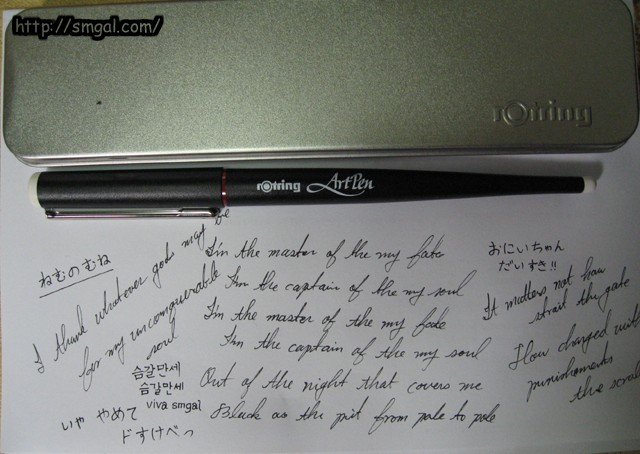 http://smgal.com/
rOtring
rOtring ArtPen
ねむのむね
I thank whatever gods may be
for my unconquerable
soul
I'm the master of the my fate
I'm the captain of the my soul
I'm the master of the my fate
I'm the captain of the my soul
Out of the night that covers me
Black as the pit from pole to pole
おにいちゃん
だいすき!!
It matters not how
strait the gate
How charged with
punishments
the scroll
슴갈만세
슴갈만세
viva smgal
いや やめて
ドすけべっ